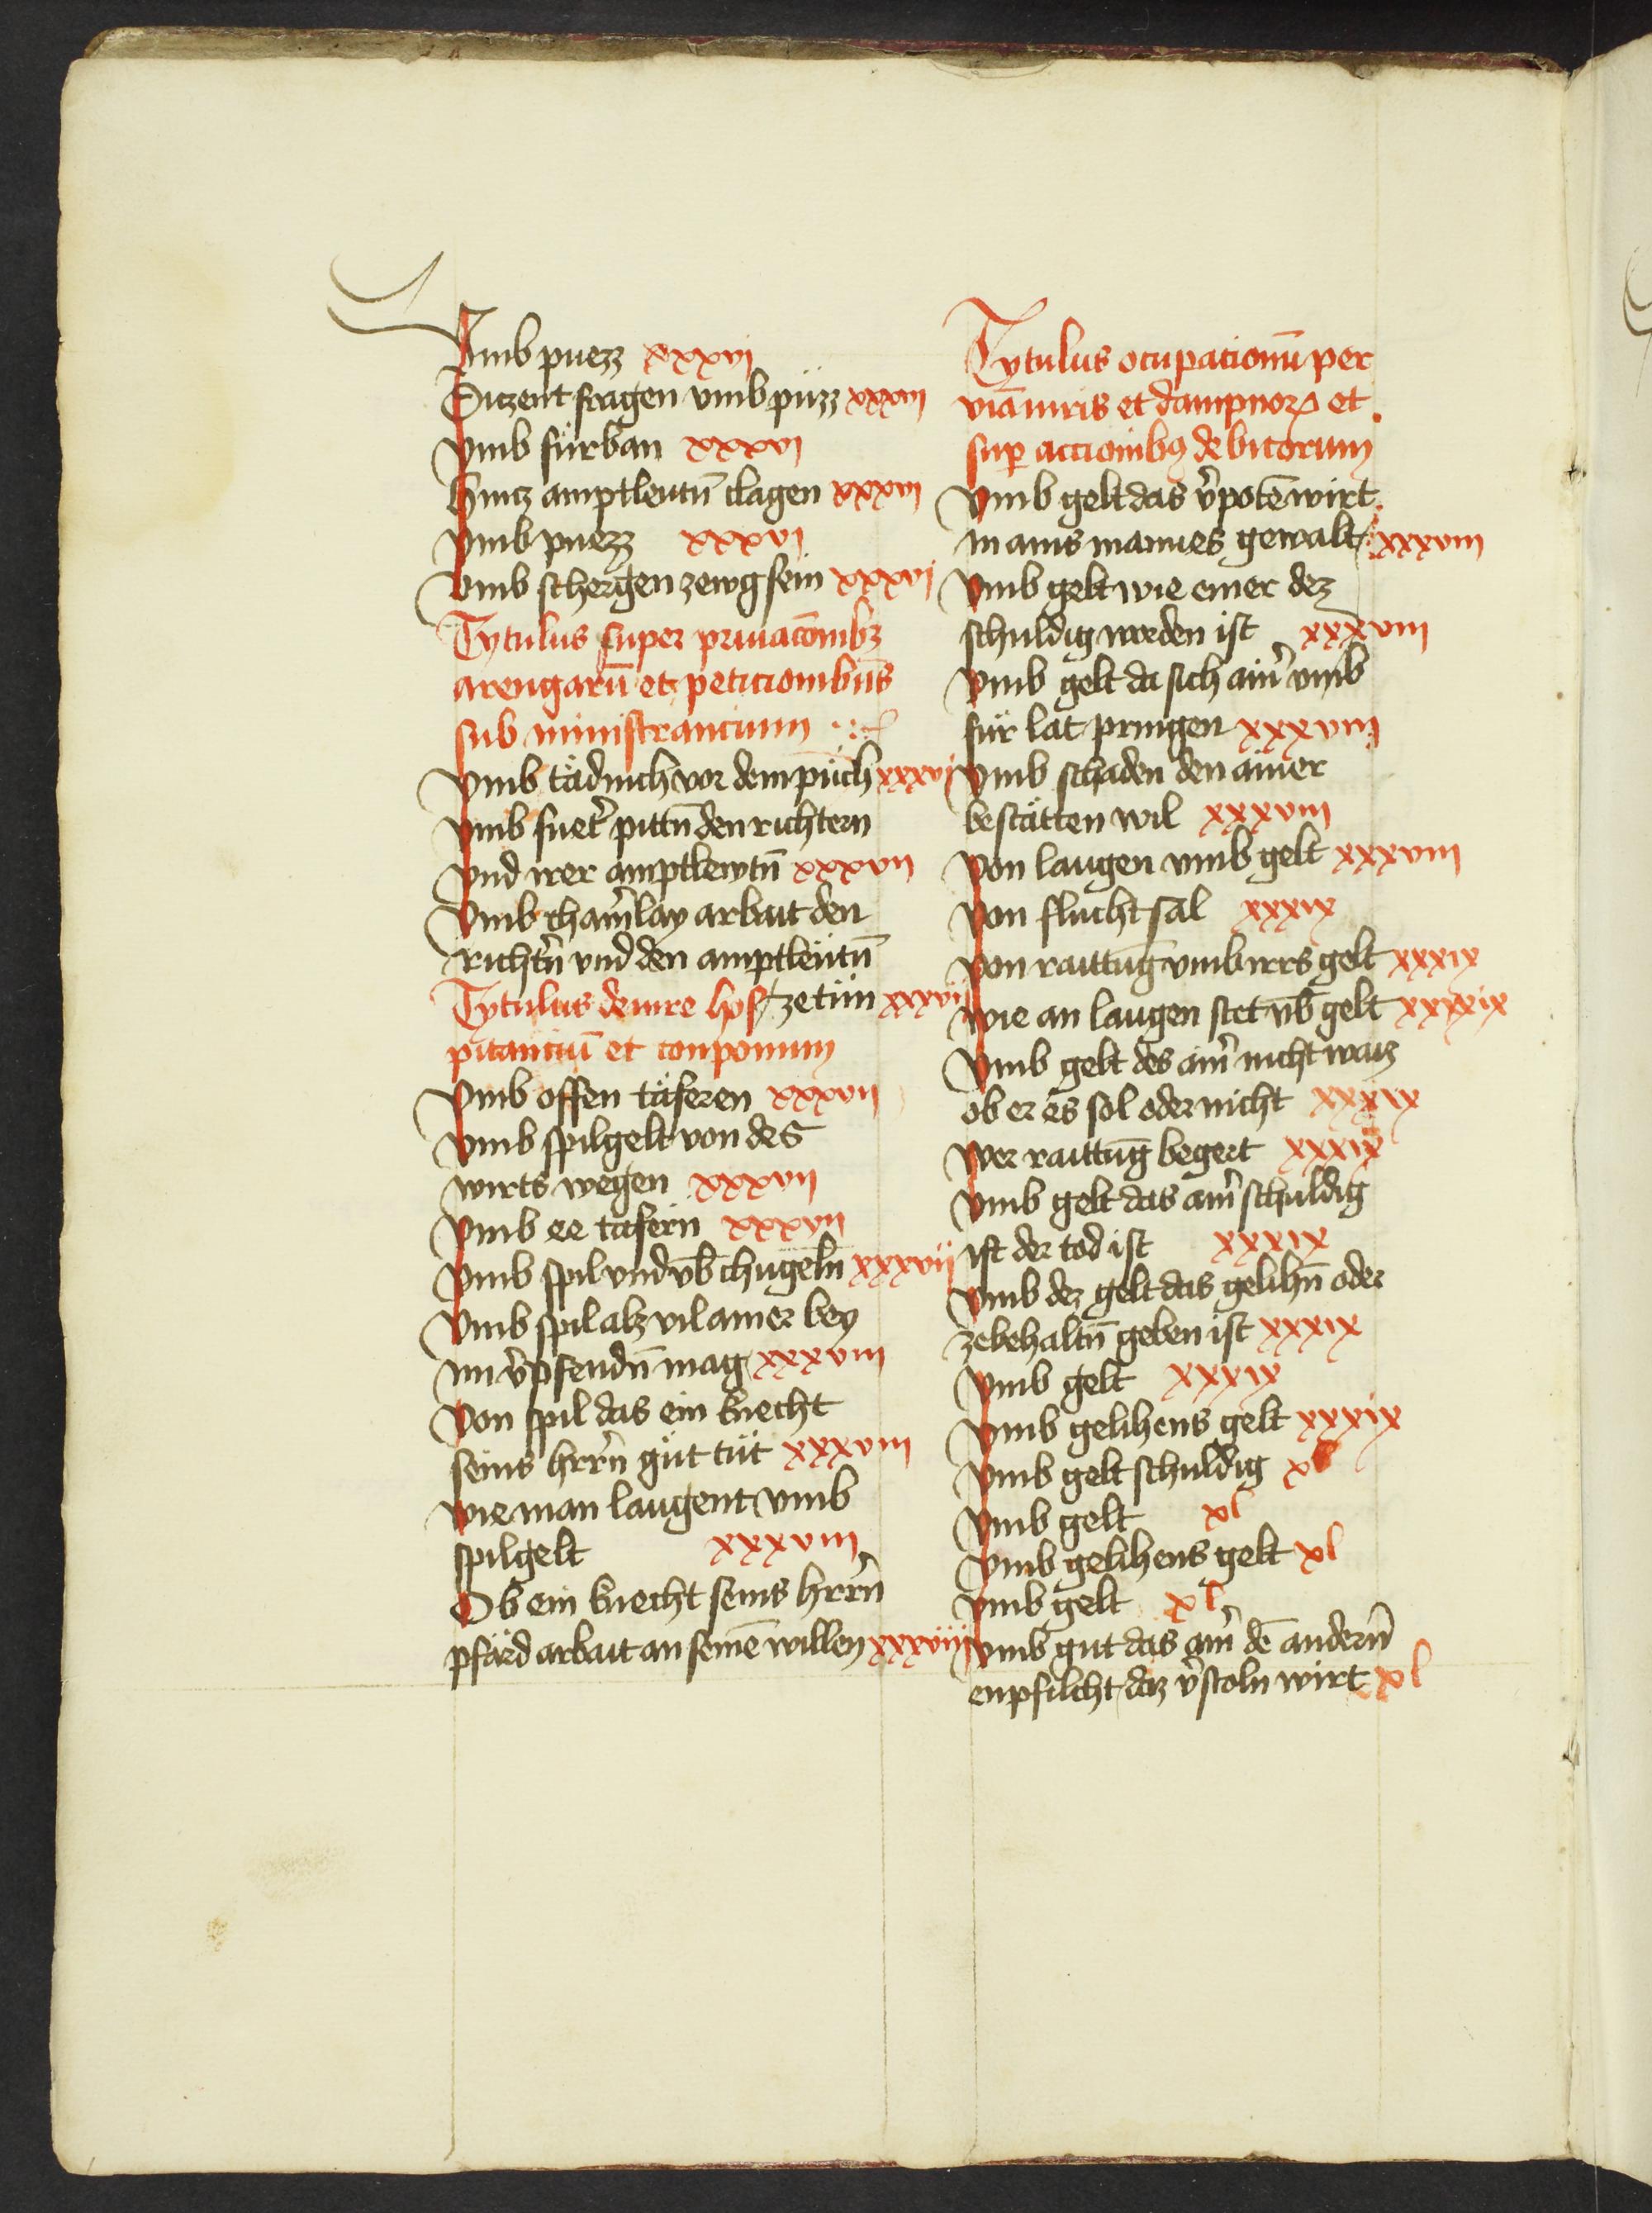 Vmb puezz xxxvj
Sitzent fragen vmb püzz xxxvj
Vmb fürban xxxvj
Hintz amptleutn̄ clagen xxxvj
Vmb puezz xxxvj
Vmb schergen zewg sein xxxvj
Tytulus super priuacōnibz
arengarū et peticionibus
sub ministrancium
Vmb tädinch vor dem pǔch xxxvij
Vmb fuet̄ pittn̄ den richtern
Vnd irer amptlewtn̄ xxxvij
Vmb chain̄lay arbait den
richtn̄ vnd den amptleütn̄
zetün xxxvij
Tytulus de iure hos
pitanciū et conponum
Vmb offen täferen xxxvij
Vmb spilgelt von des
wirts wegen xxxvij
Vmb ee tafern xxxvij
Vmb spil vnd vb̄ chugeln̄ xxxvij
Vmb spil alz vil ainer bey
im v̄pfendn̄ mag xxxviij
Von spil das ein knecht
seins hrrn̄ güt tüt xxxviij
Wie man laugent vmb
spilgelt xxxviij
Ob ein knecht seins hrrn̄
pfärd arbait an seinē willen xxxviij
Tytulus ocupacionū per
viā iuris et dampnorꝝ et
sup̱ accionibꝰ debitorum
Vmb gelt das v̄potē wirt
in ains mannes gewalt xxxviij
Vmb gelt wie einer dez
schuldig worden ist xxxviij
Vmb gelt da sich ain̄ vmb
für lat pringen xxxviij
Vmb schaden den ainer
bestätten wil xxxviij
Von laugen vmb gelt xxxviij
Von flucht sal xxxix
Von raittūg vmb irrs gelt xxxix
Wie an laugen stet vb̄ gelt xxxix
Vmb gelt des ain̄ nicht waiz
ob er es sol oder nicht xxxix
Wer raittūg begert xxxix
Vmb gelt das ain̄ schuldig
ist der tod ist xxxix
Vmb dez gelt das gelihn̄ oder
zebehaltn̄ geben ist xxxix
Vmb gelt xxxix
Vmb gelihens gelt xxxix
Vmb gelt schuldig xl
Vmb gelt xl
Vmb gelihens gelt xl
Vmb gelt xl
Vmb gut das ain̄ dē andern̄
enpfilcht daz v̄stoln wirt xl